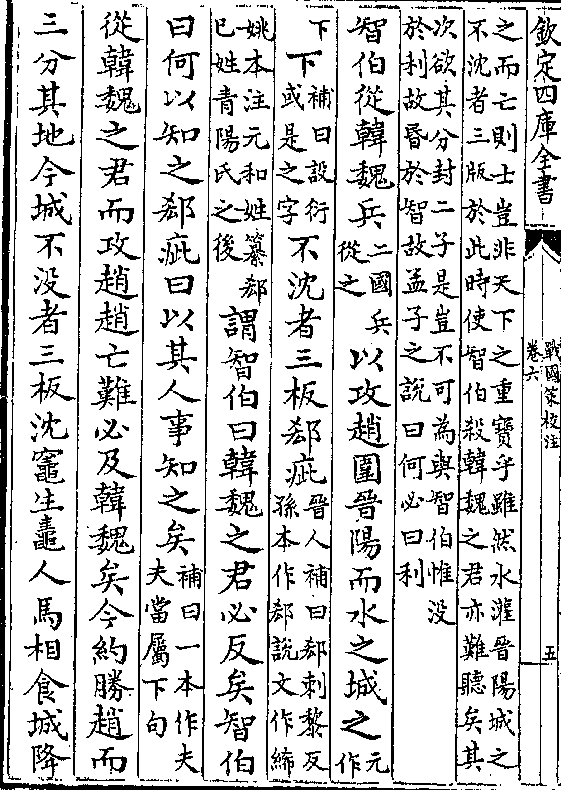 欽定四庫全書
戰國策校注
卷六
五
之而亡則士豈非天下之重寶乎雖然水灌晉陽城之
不沈者三版於此時使智伯殺韓魏之君亦難聽矣其
次欲其分封二子是豈不可為與智伯惟没
於利故昏於智故孟子之說曰何必曰利
智伯從韓魏兵二國兵從之以攻趙圍晉陽而水之城之元作
下下補曰設衍或是之字不沈者三板郄疵晉人補曰郄刺黎反孫本作郄說文作絺
姚本注元和姓纂郄巳姓青陽氏之後謂智伯曰韓魏之君必反矣智伯
曰何以知之郄疵曰以其人事知之矣補曰一本作夫夫當屬下句
從韓魏之君而攻趙趙亡難必及韓魏矣今約勝趙而
三分其地今城不没者三板沈竈生鼃人馬相食城降